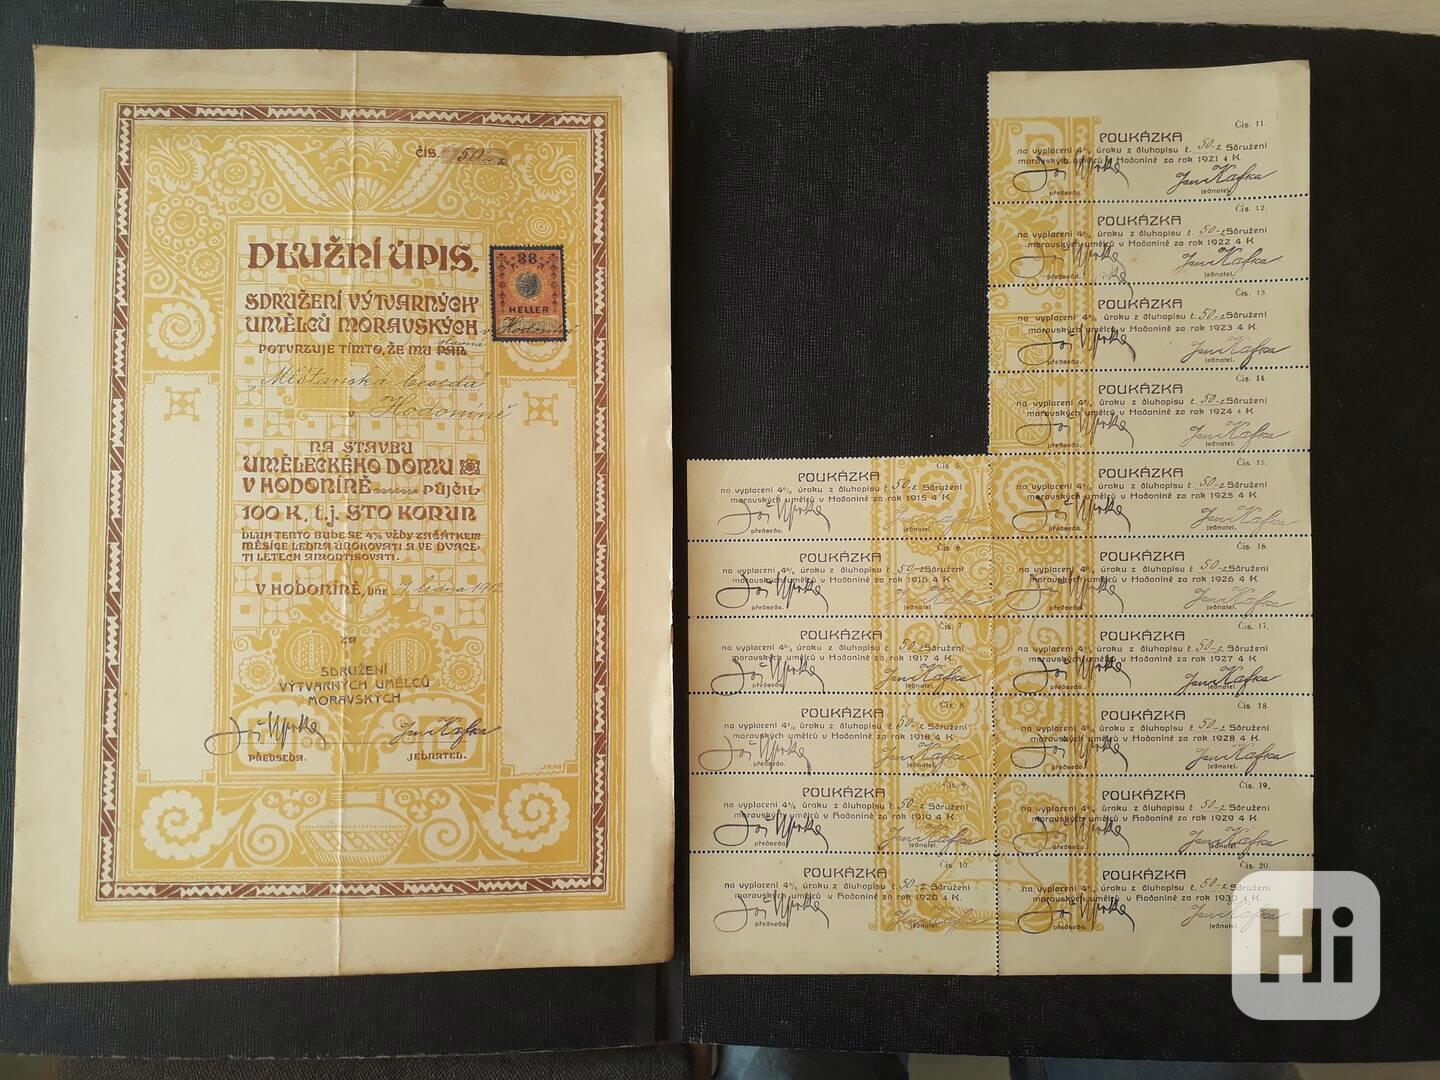 čís. 50
DLUŽNÍ ÚPIS.
88
HELLER
SDRUŽENÍ VÝTVARNÝCH
UMĚLCŮ MORAVSKÝCH v Hodoníně
POTVRZUJE TÍMTO, ŽE MU PAN slavná
„Měšťanská beseda"
v Hodoníně
NA STAVBU
UMĚLECKÉHO DOMU
V HODONÍNĚ PŮJČIL
100 K, t.j. STO KORUN
DLUH TENTO BUDE SE 4% VŽDY ZAČÁTKEM
MĚSÍCE LEDNA ÚROKOVATI A VE DVACE-
TI LETECH AMORTISOVATI.
V HODONÍNĚ, DNE 7. ledna 1912
ZA
SDRUŽENÍ
VÝTVARNÝCH UMĚLCŮ
MORAVSKÝCH
Jož Uprka Jan Kafka
PŘEDSEDA. JEDNATEL.
Čís. 5.
POUKÁZKA
na vyplacení 4% úroku z dluhopisu č. 50 Sdružení
moravských umělců v Hodoníně za rok 1915 4 K.
Jož Uprka Jan Kafka
předseda. jednatel.
Čís. 6.
POUKÁZKA
na vyplacení 4% úroku z dluhopisu č. 50 Sdružení
moravských umělců v Hodoníně za rok 1916 4 K.
Jož Uprka Jan Kafka
předseda. jednatel.
Čís. 7.
POUKÁZKA
na vyplacení 4% úroku z dluhopisu č. 50 Sdružení
moravských umělců v Hodoníně za rok 1917 4 K.
Jož Uprka Jan Kafka
předseda. jednatel.
Čís. 8.
POUKÁZKA
na vyplacení 4% úroku z dluhopisu č. 50 Sdružení
moravských umělců v Hodoníně za rok 1918 4 K.
Jož Uprka Jan Kafka
předseda. jednatel.
Čís. 9.
POUKÁZKA
na vyplacení 4% úroku z dluhopisu č. 50 Sdružení
moravských umělců v Hodoníně za rok 1919 4 K.
Jož Uprka Jan Kafka
předseda. jednatel.
Čís. 10.
POUKÁZKA
na vyplacení 4% úroku z dluhopisu č. 50 Sdružení
moravských umělců v Hodoníně za rok 1920 4 K.
Jož Uprka Jan Kafka
předseda. jednatel.
Čís. 11.
POUKÁZKA
na vyplacení 4% úroku z dluhopisu č. 50 Sdružení
moravských umělců v Hodoníně za rok 1921 4 K.
Jož Uprka Jan Kafka
předseda. jednatel.
Čís. 12.
POUKÁZKA
na vyplacení 4% úroku z dluhopisu č. 50 Sdružení
moravských umělců v Hodoníně za rok 1922 4 K.
Jož Uprka Jan Kafka
předseda. jednatel.
Čís. 13.
POUKÁZKA
na vyplacení 4% úroku z dluhopisu č. 50 Sdružení
moravských umělců v Hodoníně za rok 1923 4 K.
Jož Uprka Jan Kafka
předseda. jednatel.
Čís. 14.
POUKÁZKA
na vyplacení 4% úroku z dluhopisu č. 50 Sdružení
moravských umělců v Hodoníně za rok 1924 4 K.
Jož Uprka Jan Kafka
předseda. jednatel.
Čís. 15.
POUKÁZKA
na vyplacení 4% úroku z dluhopisu č. 50 Sdružení
moravských umělců v Hodoníně za rok 1925 4 K.
Jož Uprka Jan Kafka
předseda. jednatel.
Čís. 16.
POUKÁZKA
na vyplacení 4% úroku z dluhopisu č. 50 Sdružení
moravských umělců v Hodoníně za rok 1926 4 K.
Jož Uprka Jan Kafka
předseda. jednatel.
Čís. 17.
POUKÁZKA
na vyplacení 4% úroku z dluhopisu č. 50 Sdružení
moravských umělců v Hodoníně za rok 1927 4 K.
Jož Uprka Jan Kafka
předseda. jednatel.
Čís. 18.
POUKÁZKA
na vyplacení 4% úroku z dluhopisu č. 50 Sdružení
moravských umělců v Hodoníně za rok 1928 4 K.
Jož Uprka Jan Kafka
předseda. jednatel.
Čís. 19.
POUKÁZKA
na vyplacení 4% úroku z dluhopisu č. 50 Sdružení
moravských umělců v Hodoníně za rok 1929 4 K.
Jož Uprka Jan Kafka
předseda. jednatel.
Čís. 20.
POUKÁZKA
na vyplacení 4% úroku z dluhopisu č. 50 Sdružení
moravských umělců v Hodoníně za rok 1930 4 K.
Jož Uprka Jan Kafka
předseda. jednatel.
Hi